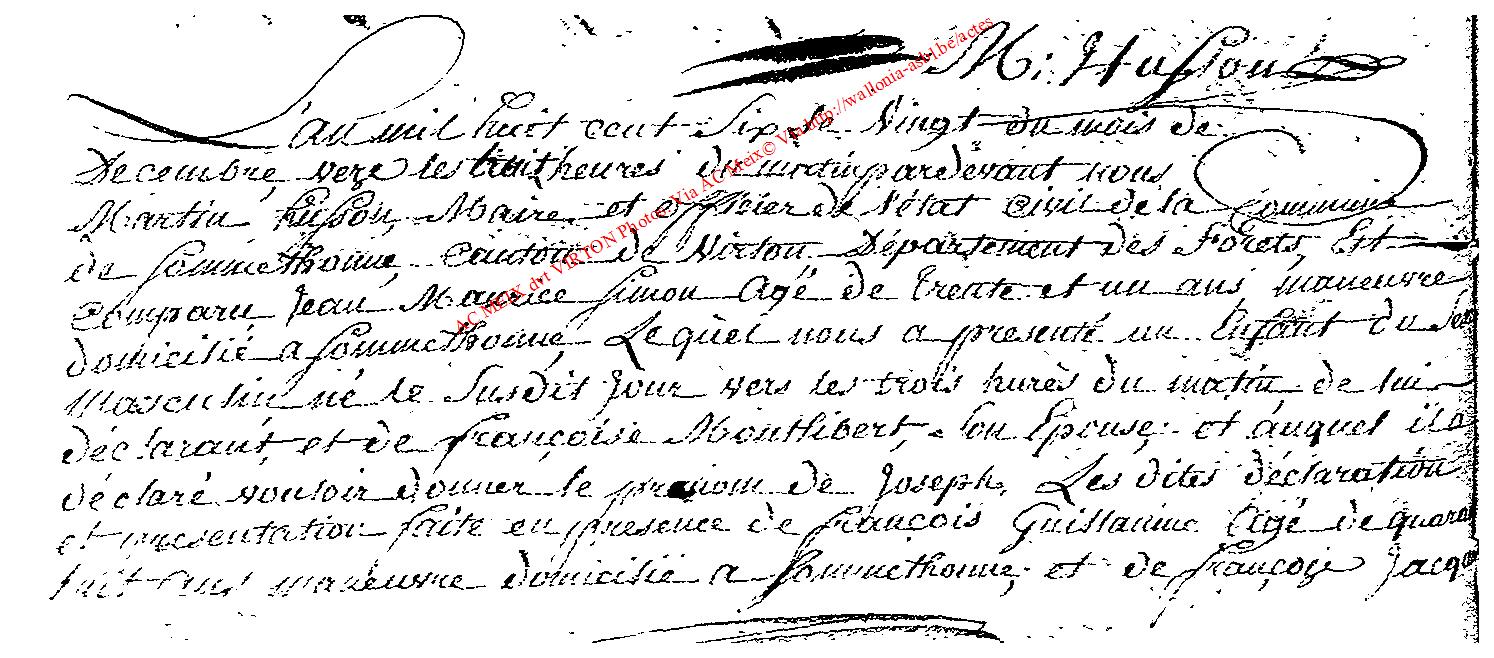 M: Husson
L'an mil huit cent Six le Vingt du mois de
Decembre, vers les huit heures du matin pardevant nous
Martin husson, Maire et officier de l'état civil de la Commune
de Sommethonne, Canton de Virton Département des Forets, Est
Comparu Jean Maurice Simon Agé de trente et un ans, maneuvre
domicilié a Sommethonne, Lequel nous a presenté un Enfant du Sex
Masculin né le Susdit Jour vers les trois hures du matin, de lui
déclarant, et de françoise Monthibert, Son Epouse, et auquel il a
déclaré vouloir donner le prenom de Joseph, Les dites déclaration
et presentation faite en presence de françois Guillaume Agé de quara
huit ans maneuvre domicilié a Sommethonne, et de françois Jacq
AC MEIX dvt VIRTON Photos Via AC Meix© Via http://wallonia-asbl.be/actes